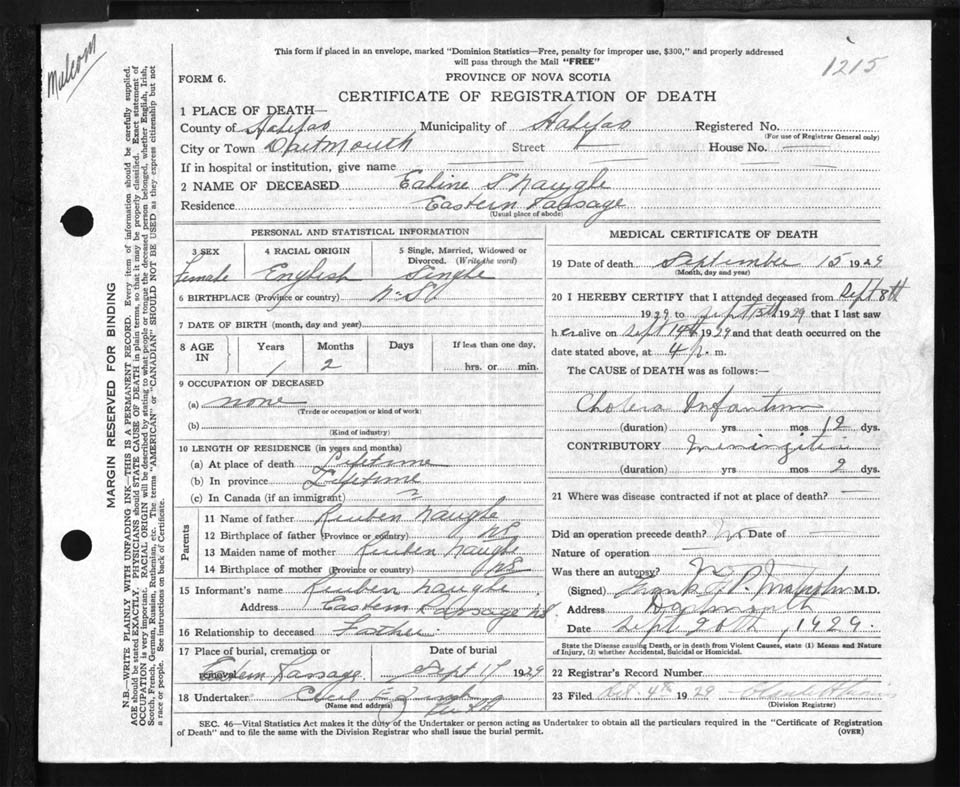 This form if placed in an envelope, marked "Dominion Statistics—Free, penalty for improper use, $300," and properly addressed
will pass through the Mail "FREE"
1215
FORM 6.
PROVINCE OF NOVA SCOTIA
CERTIFICATE OF REGISTRATION OF DEATH
MARGIN RESERVED FOR BINDING
N.B.—WRITE PLAINLY WITH UNFADING INK—THIS IS A PERMANENT RECORD. Every item of information should be carefully supplied.
AGE should be stated EXACTLY. PHYSICIANS should STATE CAUSE OF DEATH in plain terms, so that it may be properly classified. Exact statement of
OCCUPATION is very important. RACIAL ORIGIN will be described by stating to what people or tongue the deceased person belonged, whether English, Irish,
Scotch, French, German, Russian, Ruthenian, etc. The terms "AMERICAN" or "CANADIAN" SHOULD NOT BE USED as they express citizenship but not
a race or people. See instructions on back of Certificate.
1 PLACE OF DEATH—
County of Halifax Municipality of Halifax Registered No.
(For use of Registrar General only)
City or Town Dartmouth Street House No.
If in hospital or institution, give name
2 NAME OF DECEASED Naugle
Residence Eastern Passage
(Usual place of abode)
PERSONAL AND STATISTICAL INFORMATION
3 SEX 4 RACIAL ORIGIN 5 Single, Married, Widowed or
Divorced. (Write the word)
female English Single
6 BIRTHPLACE (Province or country) N.S.
7 DATE OF BIRTH (month, day and year)
8 AGE IN Years Months Days If less than one day,
1 2 hrs. or min.
9 OCCUPATION OF DECEASED
(a) none
(Trade or occupation or kind of work)
(b)
(Kind of industry)
10 LENGTH OF RESIDENCE (in years and months)
(a) At place of death Lifetime
(b) In province Lifetime
(c) In Canada (if an immigrant)
Parents
11 Name of father Reuben Naugle
12 Birthplace of father (Province or country) NS
13 Maiden name of mother Reuben Naugle
14 Birthplace of mother (Province or country) NS
15 Informant's name Reuben Naugle
Address Eastern Passage NS
16 Relationship to deceased Father
17 Place of burial, cremation or removal Date of burial
Eastern Passage Sept 17 1929
18 Undertaker
(Name and address)
MEDICAL CERTIFICATE OF DEATH
19 Date of death September 15 1929
(Month, day and year)
20 I HEREBY CERTIFY that I attended deceased from Sept 8th
1929 to Sept 15th 1929 that I last saw
her alive on Sept 14th 1929 and that death occurred on the
date stated above, at 4 p. m.
The CAUSE of DEATH was as follows:—
Cholera Infantum
(duration) yrs mos 12 dys.
CONTRIBUTORY meningitis
(duration) yrs mos 2 dys.
21 Where was disease contracted if not at place of death?
Did an operation precede death? No Date of
Nature of operation
Was there an autopsy? No
(Signed) Frank M.D.
Address Dartmouth
Date Sept 20th, 1929.
State the Disease causing Death, or in death from Violent Causes, state (1) Means and Nature
of Injury, (2) whether Accidental, Suicidal or Homicidal.
22 Registrar's Record Number
23 Filed Oct 4th 1929
(Division Registrar)
SEC. 46—Vital Statistics Act makes it the duty of the Undertaker or person acting as Undertaker to obtain all the particulars required in the "Certificate of Registration
of Death" and to file the same with the Division Registrar who shall issue the burial permit. (OVER)